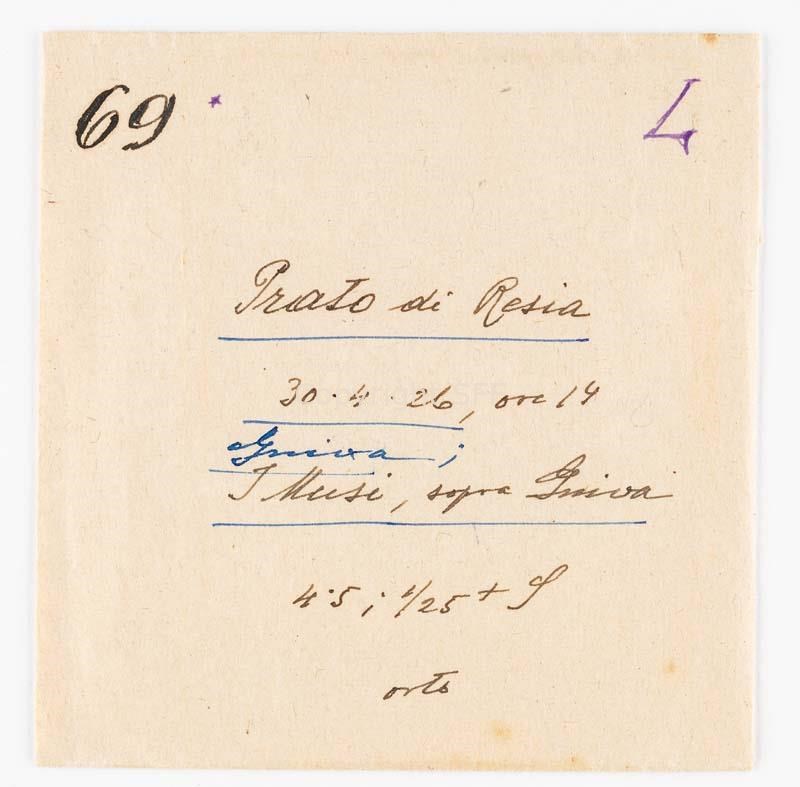 69 *
L
Prato di Resia
30.4.26, ore 14
Gniva;
I Musi, sopra Gniva
4.5; 1/25 +
orto